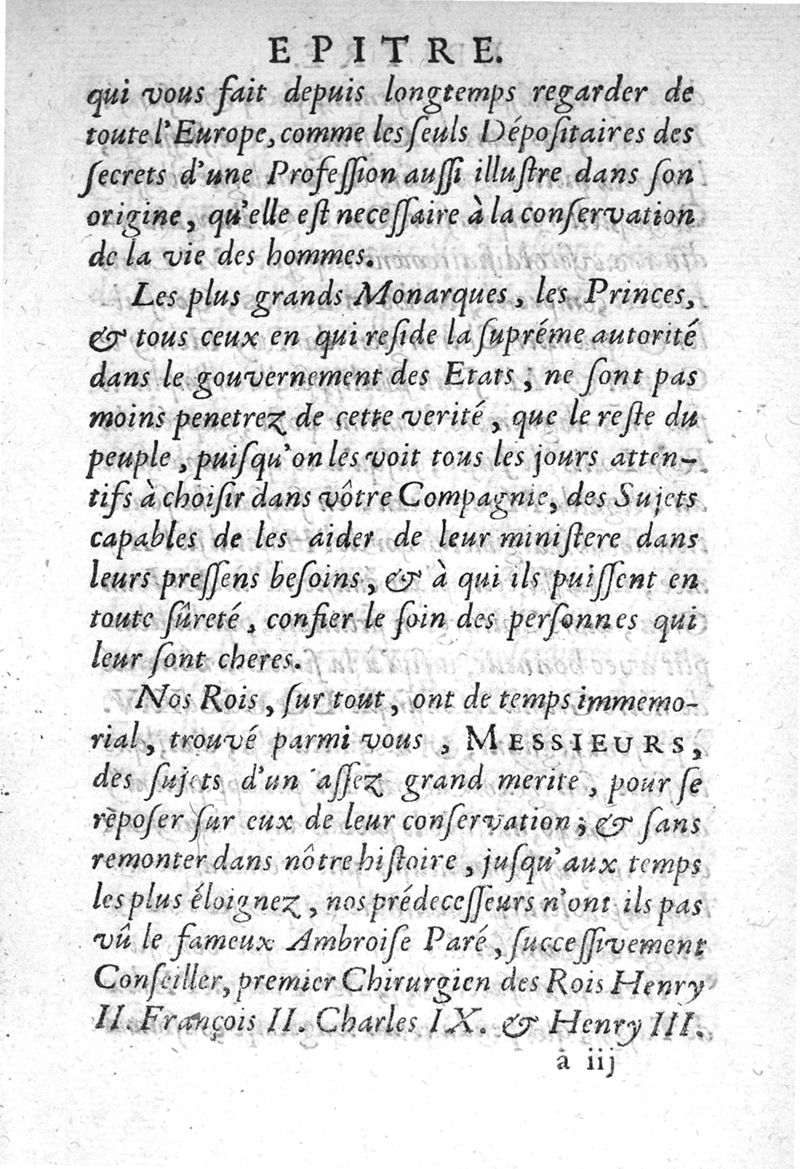 EPITRE.
qui vous fait depuis longtemps regarder de
toute l'Europe, comme les ſeuls Dépoſitaires des
ſecrets d'une Profeſſion auſſi illuſtre dans ſon
origine, qu'elle eſt neceſſaire à la conſervation
de la vie des hommes.
Les plus grands Monarques, les Princes,
& tous ceux en qui reſide la ſupréme autorité
dans le gouvernement des Etats, ne ſont pas
moins penetrez de cette verité, que le reſte du
peuple, puiſqu'on les voit tous les jours atten-
tifs à choiſir dans vôtre Compagnie, des Sujets
capables de les aider de leur miniſtere dans
leurs preſſens beſoins, & à qui ils puiſſent en
toute ſûreté, confier le ſoin des perſonnes qui
leur ſont cheres.
Nos Rois, ſur tout, ont de temps immemo-
rial, trouvé parmi vous, MESSIEURS,
des ſujets d'un aſſez grand merite, pour ſe
repoſer ſur eux de leur conſervation; & ſans
remonter dans nôtre hiſtoire, juſqu'aux temps
les plus éloignez, nos prédeceſſeurs n'ont ils pas
vû le fameux Ambroiſe Paré, ſucceſſivement
Conſeiller, premier Chirurgien des Rois Henry
II. François II. Charles IX. & Henry III.
a iij